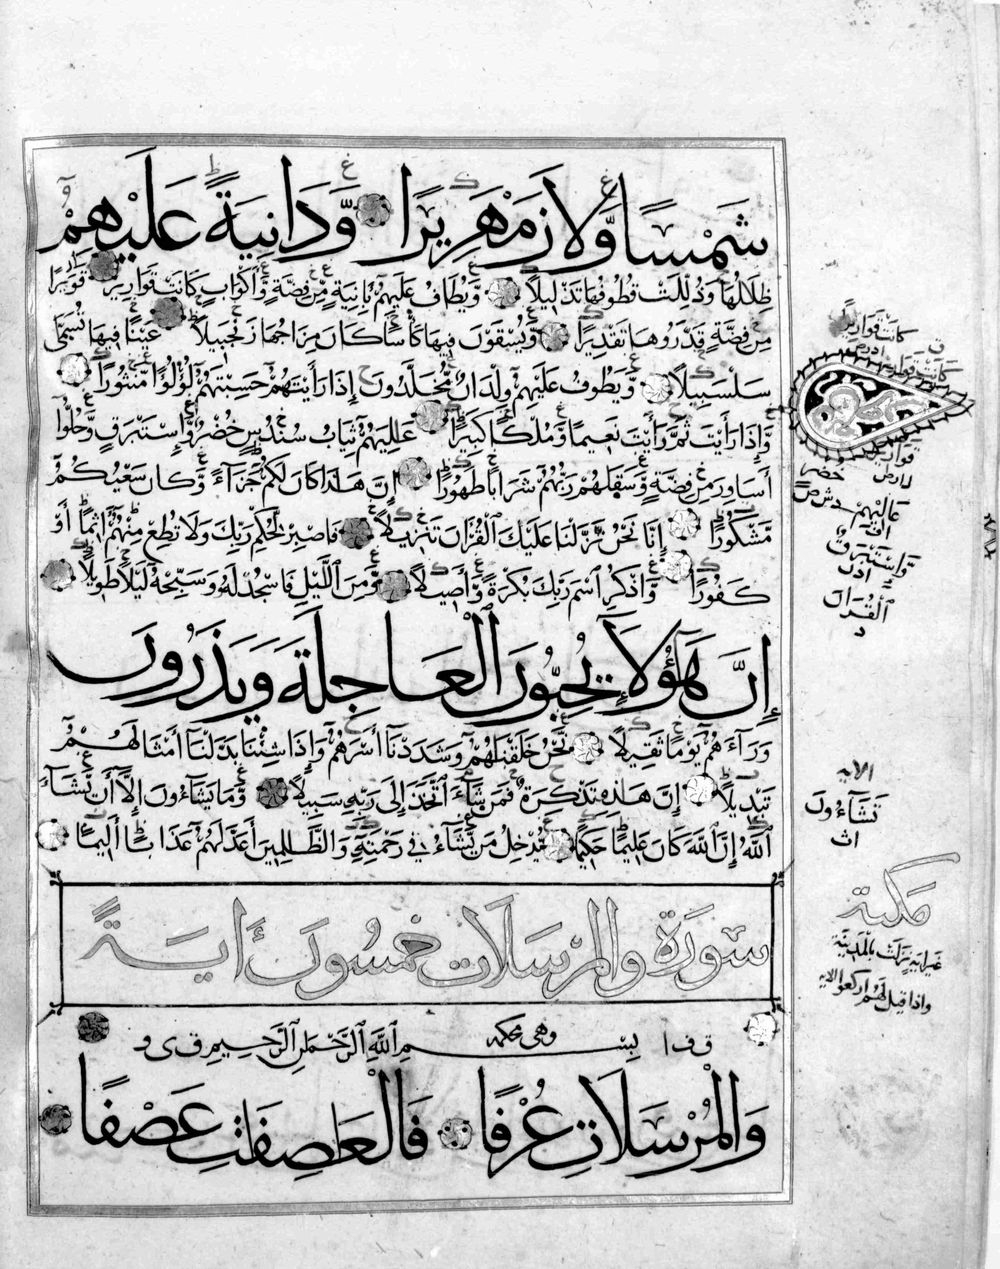 شَمْسًا وَّلَا زَمْهَرِيْرًا وَّدَانِيَةً عَلَيْهِمْ
ظِلَالُهَا وَذُلِّلَتْ قُطُوفُهَا تَذْلِيلًا وَّيُطَافُ عَلَيْهِمْ بِآنِيَةٍ مِّنْ فِضَّةٍ وَّأَكْوَابٍ كَانَتْ قَوَارِيرَا قَوَارِيرَا
مِنْ فِضَّةٍ قَدَّرُوهَا تَقْدِيرًا وَّيُسْقَوْنَ فِيهَا كَأْسًا كَانَ مِزَاجُهَا زَنْجَبِيلًا عَيْنًا فِيهَا تُسَمَّى
سَلْسَبِيلًا وَّيَطُوفُ عَلَيْهِمْ وِلْدَانٌ مُّخَلَّدُونَ إِذَا رَأَيْتَهُمْ حَسِبْتَهُمْ لُؤْلُؤًا مَّنْثُورًا
وَإِذَا رَأَيْتَ ثَمَّ رَأَيْتَ نَعِيمًا وَّمُلْكًا كَبِيرًا عَالِيَهُمْ ثِيَابُ سُنْدُسٍ خُضْرٌ وَّإِسْتَبْرَقٌ وَّحُلُّوا
أَسَاوِرَ مِنْ فِضَّةٍ وَّسَقَاهُمْ رَبُّهُمْ شَرَابًا طَهُورًا إِنَّ هَذَا كَانَ لَكُمْ جَزَاءً وَّكَانَ سَعْيُكُمْ
مَّشْكُورًا إِنَّا نَحْنُ نَزَّلْنَا عَلَيْكَ الْقُرْآنَ تَنْزِيلًا فَاصْبِرْ لِحُكْمِ رَبِّكَ وَلَا تُطِعْ مِنْهُمْ آثِمًا أَوْ
كَفُورًا وَّاذْكُرِ اسْمَ رَبِّكَ بُكْرَةً وَّأَصِيلًا وَّمِنَ اللَّيْلِ فَاسْجُدْ لَهُ وَسَبِّحْهُ لَيْلًا طَوِيلًا
إِنَّ هَؤُلَاءِ يُحِبُّونَ الْعَاجِلَةَ وَيَذَرُونَ
وَرَاءَهُمْ يَوْمًا ثَقِيلًا نَحْنُ خَلَقْنَاهُمْ وَشَدَدْنَا أَسْرَهُمْ وَإِذَا شِئْنَا بَدَّلْنَا أَمْثَالَهُمْ
تَبْدِيلًا إِنَّ هَذِهِ تَذْكِرَةٌ فَمَنْ شَاءَ اتَّخَذَ إِلَى رَبِّهِ سَبِيلًا وَّمَا يَشَاءُونَ إِلَّا أَنْ يَّشَاءَ
اللَّهُ إِنَّ اللَّهَ كَانَ عَلِيمًا حَكِيمًا يُّدْخِلُ مَنْ يَّشَاءُ فِي رَحْمَتِهِ وَالظَّالِمِينَ أَعَدَّ لَهُمْ عَذَابًا أَلِيمًا
سُورَةُ وَالْمُرْسَلَاتِ خَمْسُونَ آيَةً
وهي محكمة
بِسْمِ اللَّهِ الرَّحْمَنِ الرَّحِيمِ
وَالْمُرْسَلَاتِ عُرْفًا فَالْعَاصِفَاتِ عَصْفًا
كانت قواريرًا
خضر
عَالِيهِمْ
وَإِسْتَبْرَقٍ
الْقُرَانَ
الاية
تَشَاءُونَ
مكية
غير آية نزلت بالمدينة
واذا قيل لهم اركعوا الاية